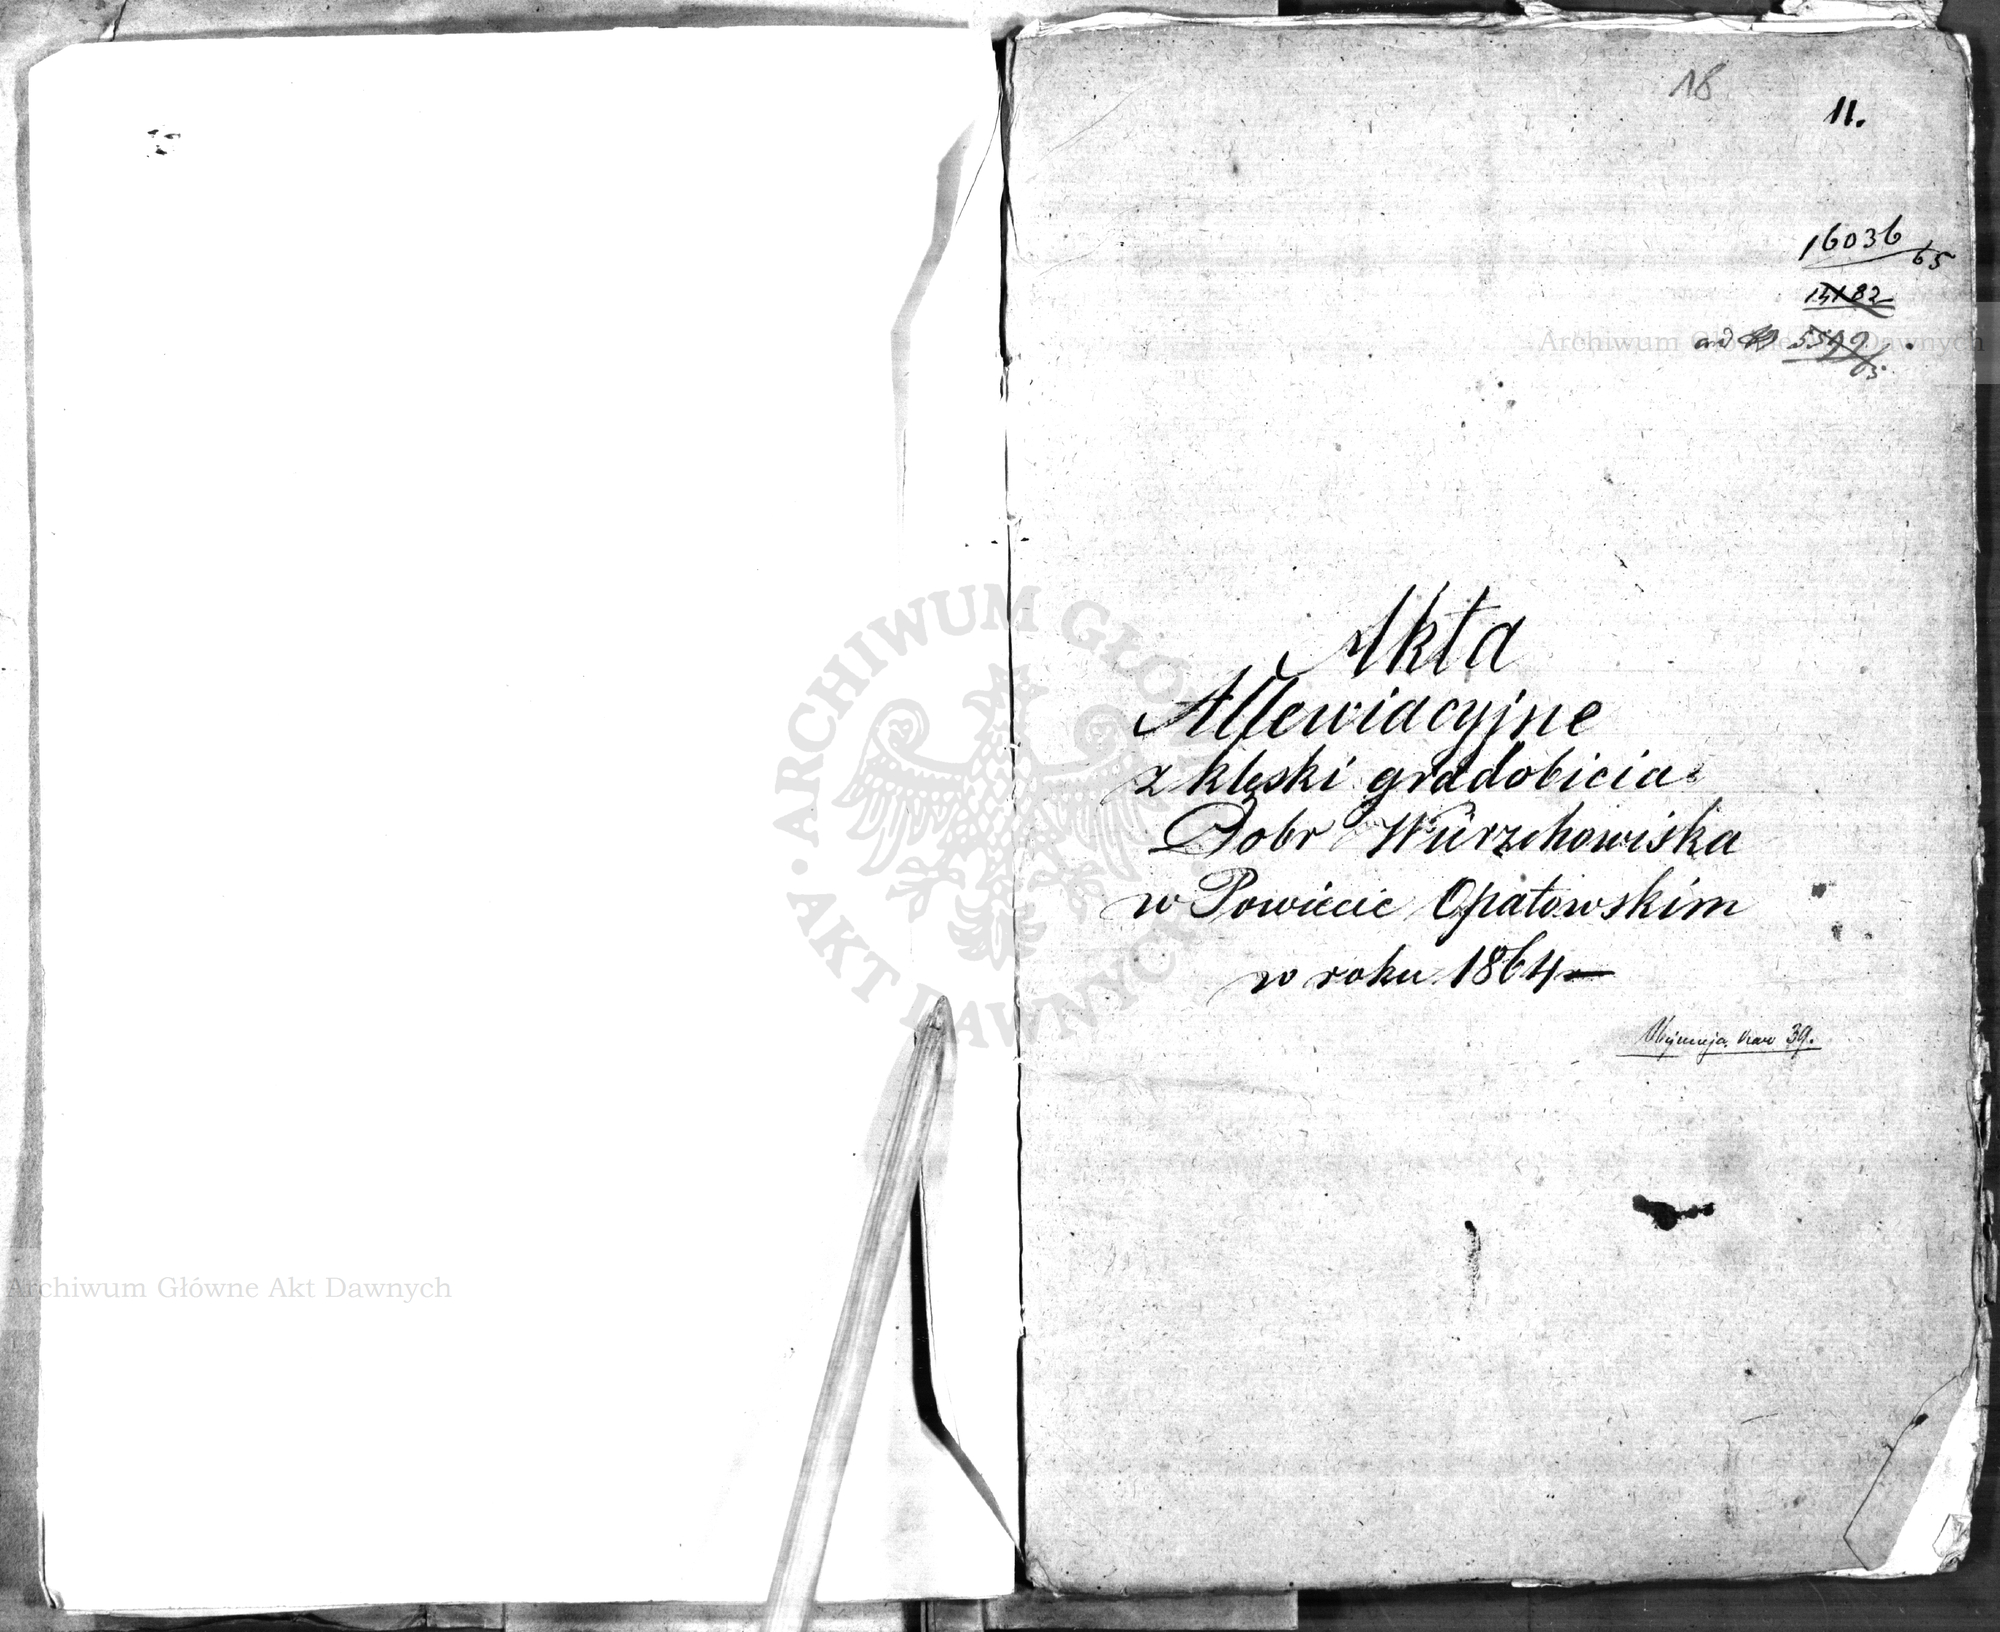 18
11.
16036/65
15182
ad 5592/65
Akta
Allewiacyjne
z klęski gradobicia
Dobr Würzchowiska
w Powiecie Opatowskim
w roku 1864
Obejmuja kart 39.
ARCHIWUM GŁÓWNE AKT DAWNYCH
Archiwum Główne Akt Dawnych
Archiwum Główne Akt Dawnych